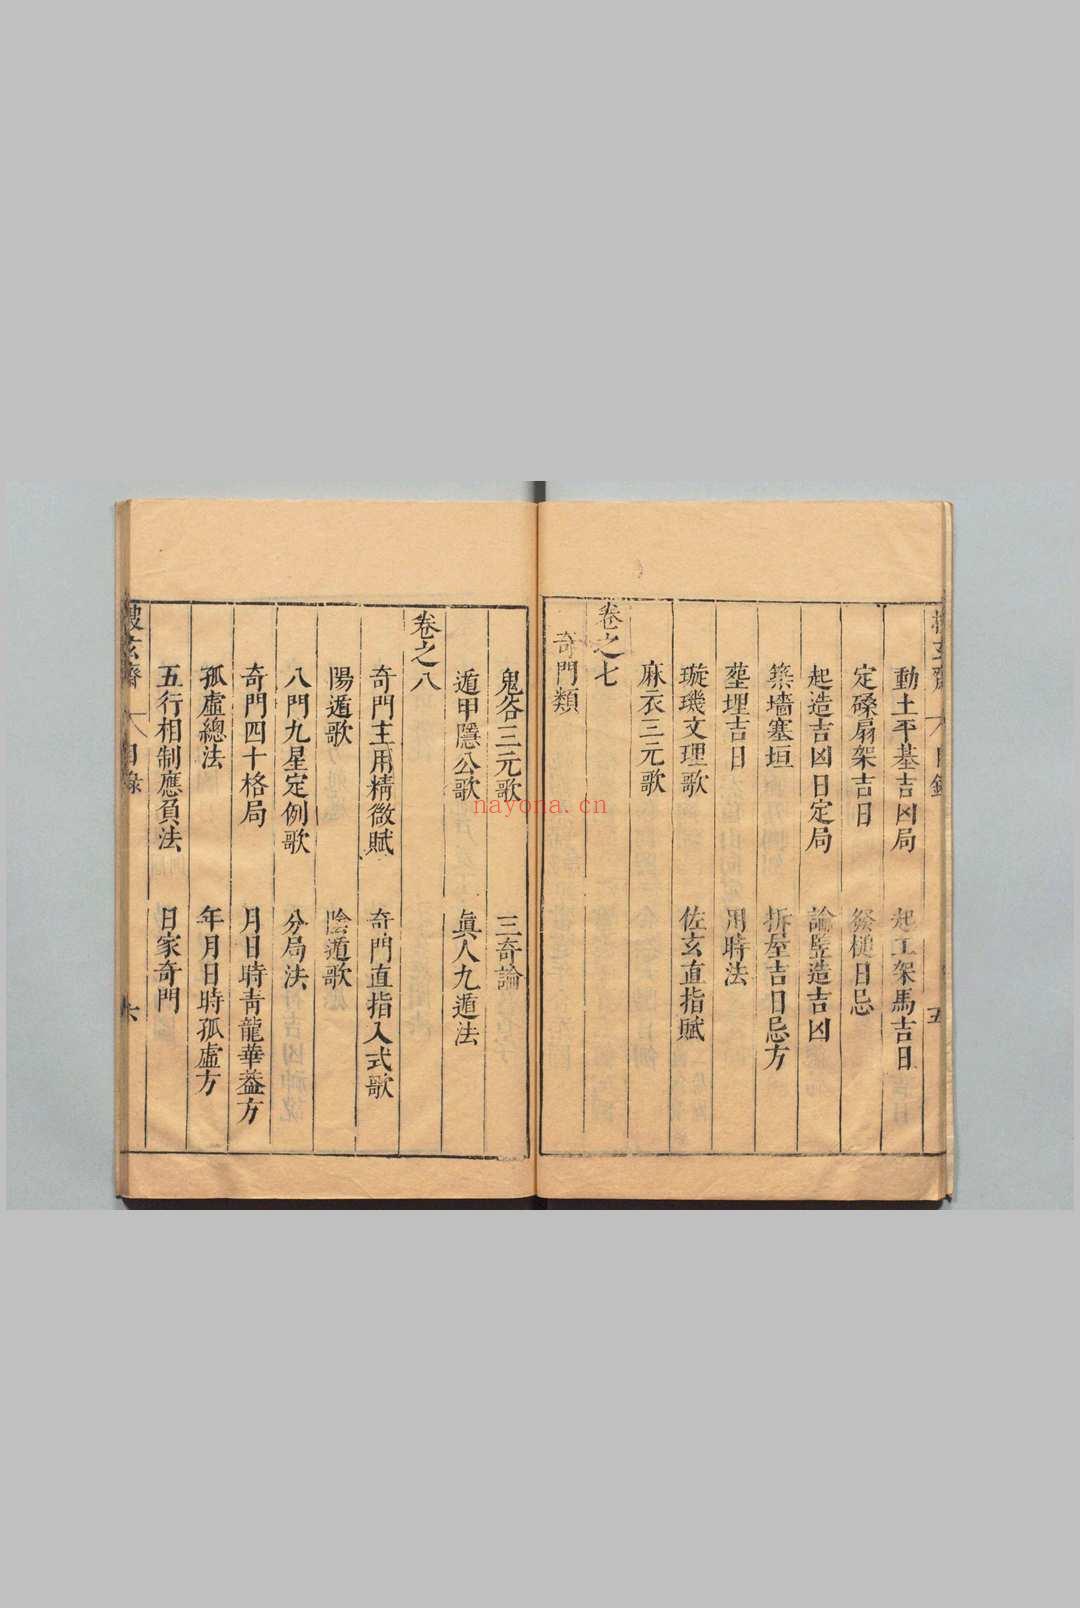 搜玄齋 目錄 五
動土平基吉凶局 起工架馬吉日
定磉扇架吉日 祭槌日忌
起造吉凶日定局 論豎造吉凶
築墻塞垣 拆屋吉日忌方
塟埋吉日 用時法
璇璣文理歌 佐玄直指賦
麻衣三元歌
卷之七
奇門類
鬼谷三元歌 三奇論
遁甲隱公歌 眞人九遁法
卷之八
奇門主用精微賦 奇門直指入式歌
陽遁歌 陰遁歌
八門九星定例歌 分局法
奇門四十格局 月日時青龍華葢方
孤虛總法 年月日時孤虛方
五行相制應負法 日家奇門
搜玄齋 目錄 六
nayona.cn